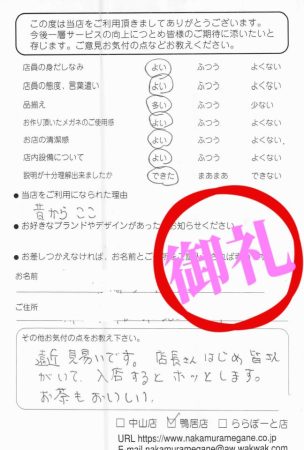 この度は当店をご利用頂きましてありがとうございます。
今後一層サービスの向上につとめ皆様のご期待に添いたいと
存じます。ご意見お気付の点などお教えください。
店員の身だしなみ よい ふつう よくない
店員の態度、言葉遣い よい ふつう よくない
品揃え 多い ふつう 少ない
お作り頂いたメガネのご使用感 よい ふつう よくない
お店の清潔感 よい ふつう よくない
店内設備について よい ふつう よくない
説明が十分理解出来ましたか できた まあまあ できない
●当店をご利用になられた理由
昔から ここ
●お好きなブランドやデザインがあったらお知らせください
●お差しつかえなければ、お名前とご
お名前
ご住所
御礼
その他お気付の点をお教え下さい。
遠近 見易いです。店長さんはじめ皆さん
がいて、入店するとホッとします。
お茶もおいしい。
□中山店 ☑鴨居店 □ららぽーと店
URL https://www.nakamuramegane.co.jp
nakamuramegane@af.wakwak.com